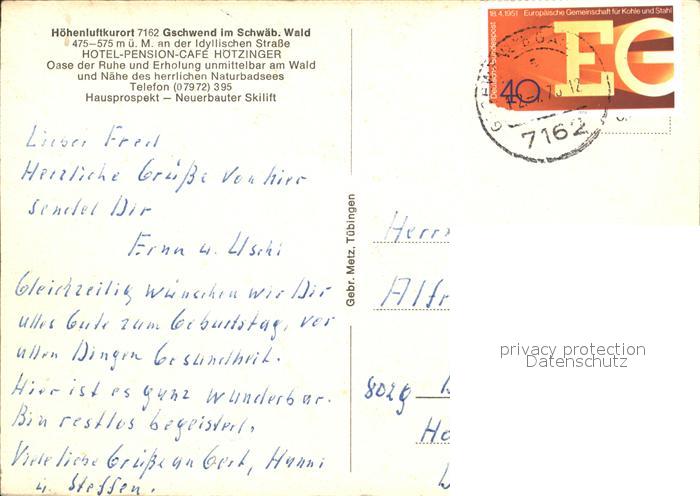 Höhenluftkurort 7162 Gschwend im Schwäb. Wald
475–575 m ü. M. an der Idyllischen Straße
HOTEL-PENSION-CAFÉ HÖTZINGER
Oase der Ruhe und Erholung unmittelbar am Wald
und Nähe des herrlichen Naturbadsees
Telefon (07972) 395
Hausprospekt – Neuerbauter Skilift
Lieber Fred
Herzliche Grüße von hier
sendet Dir
Erna u. Uschi
Gleichzeitig wünschen wir Dir
alles Gute zum Geburtstag, vor
allen Dingen Gesundheit.
Hier ist es ganz wunderbar.
Bin restlos begeistert.
Viele liebe Grüße an Gert, Hanni
u. Steffen.
Gebr. Metz, Tübingen
18.4.1951 Europäische Gemeinschaft für Kohle und Stahl
Deutsche Bundespost
EG
40
7162
Herrn
Alfr
8029
Ho
privacy protection
Datenschutz